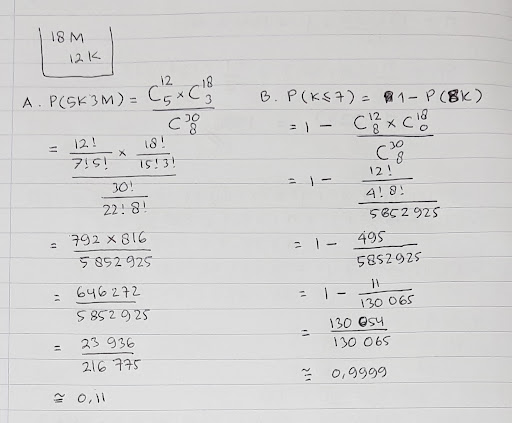 18 M
12 K
A. P(5K3M) = C 12 5 × C 18 3 / C 30 8
= 12! / 7! 5! × 18! / 15! 3! / 30! / 22! 8!
= 792 × 816 / 5 852 925
= 646 272 / 5 852 925
= 23 936 / 216 775
≅ 0,11
B. P(K≤7) = 1 - P(8K)
= 1 - C 12 8 × C 18 0 / C 30 8
= 1 - 12! / 4! 8! / 5852925
= 1 - 495 / 5852925
= 1 - 11 / 130 065
= 130 054 / 130 065
≅ 0,9999